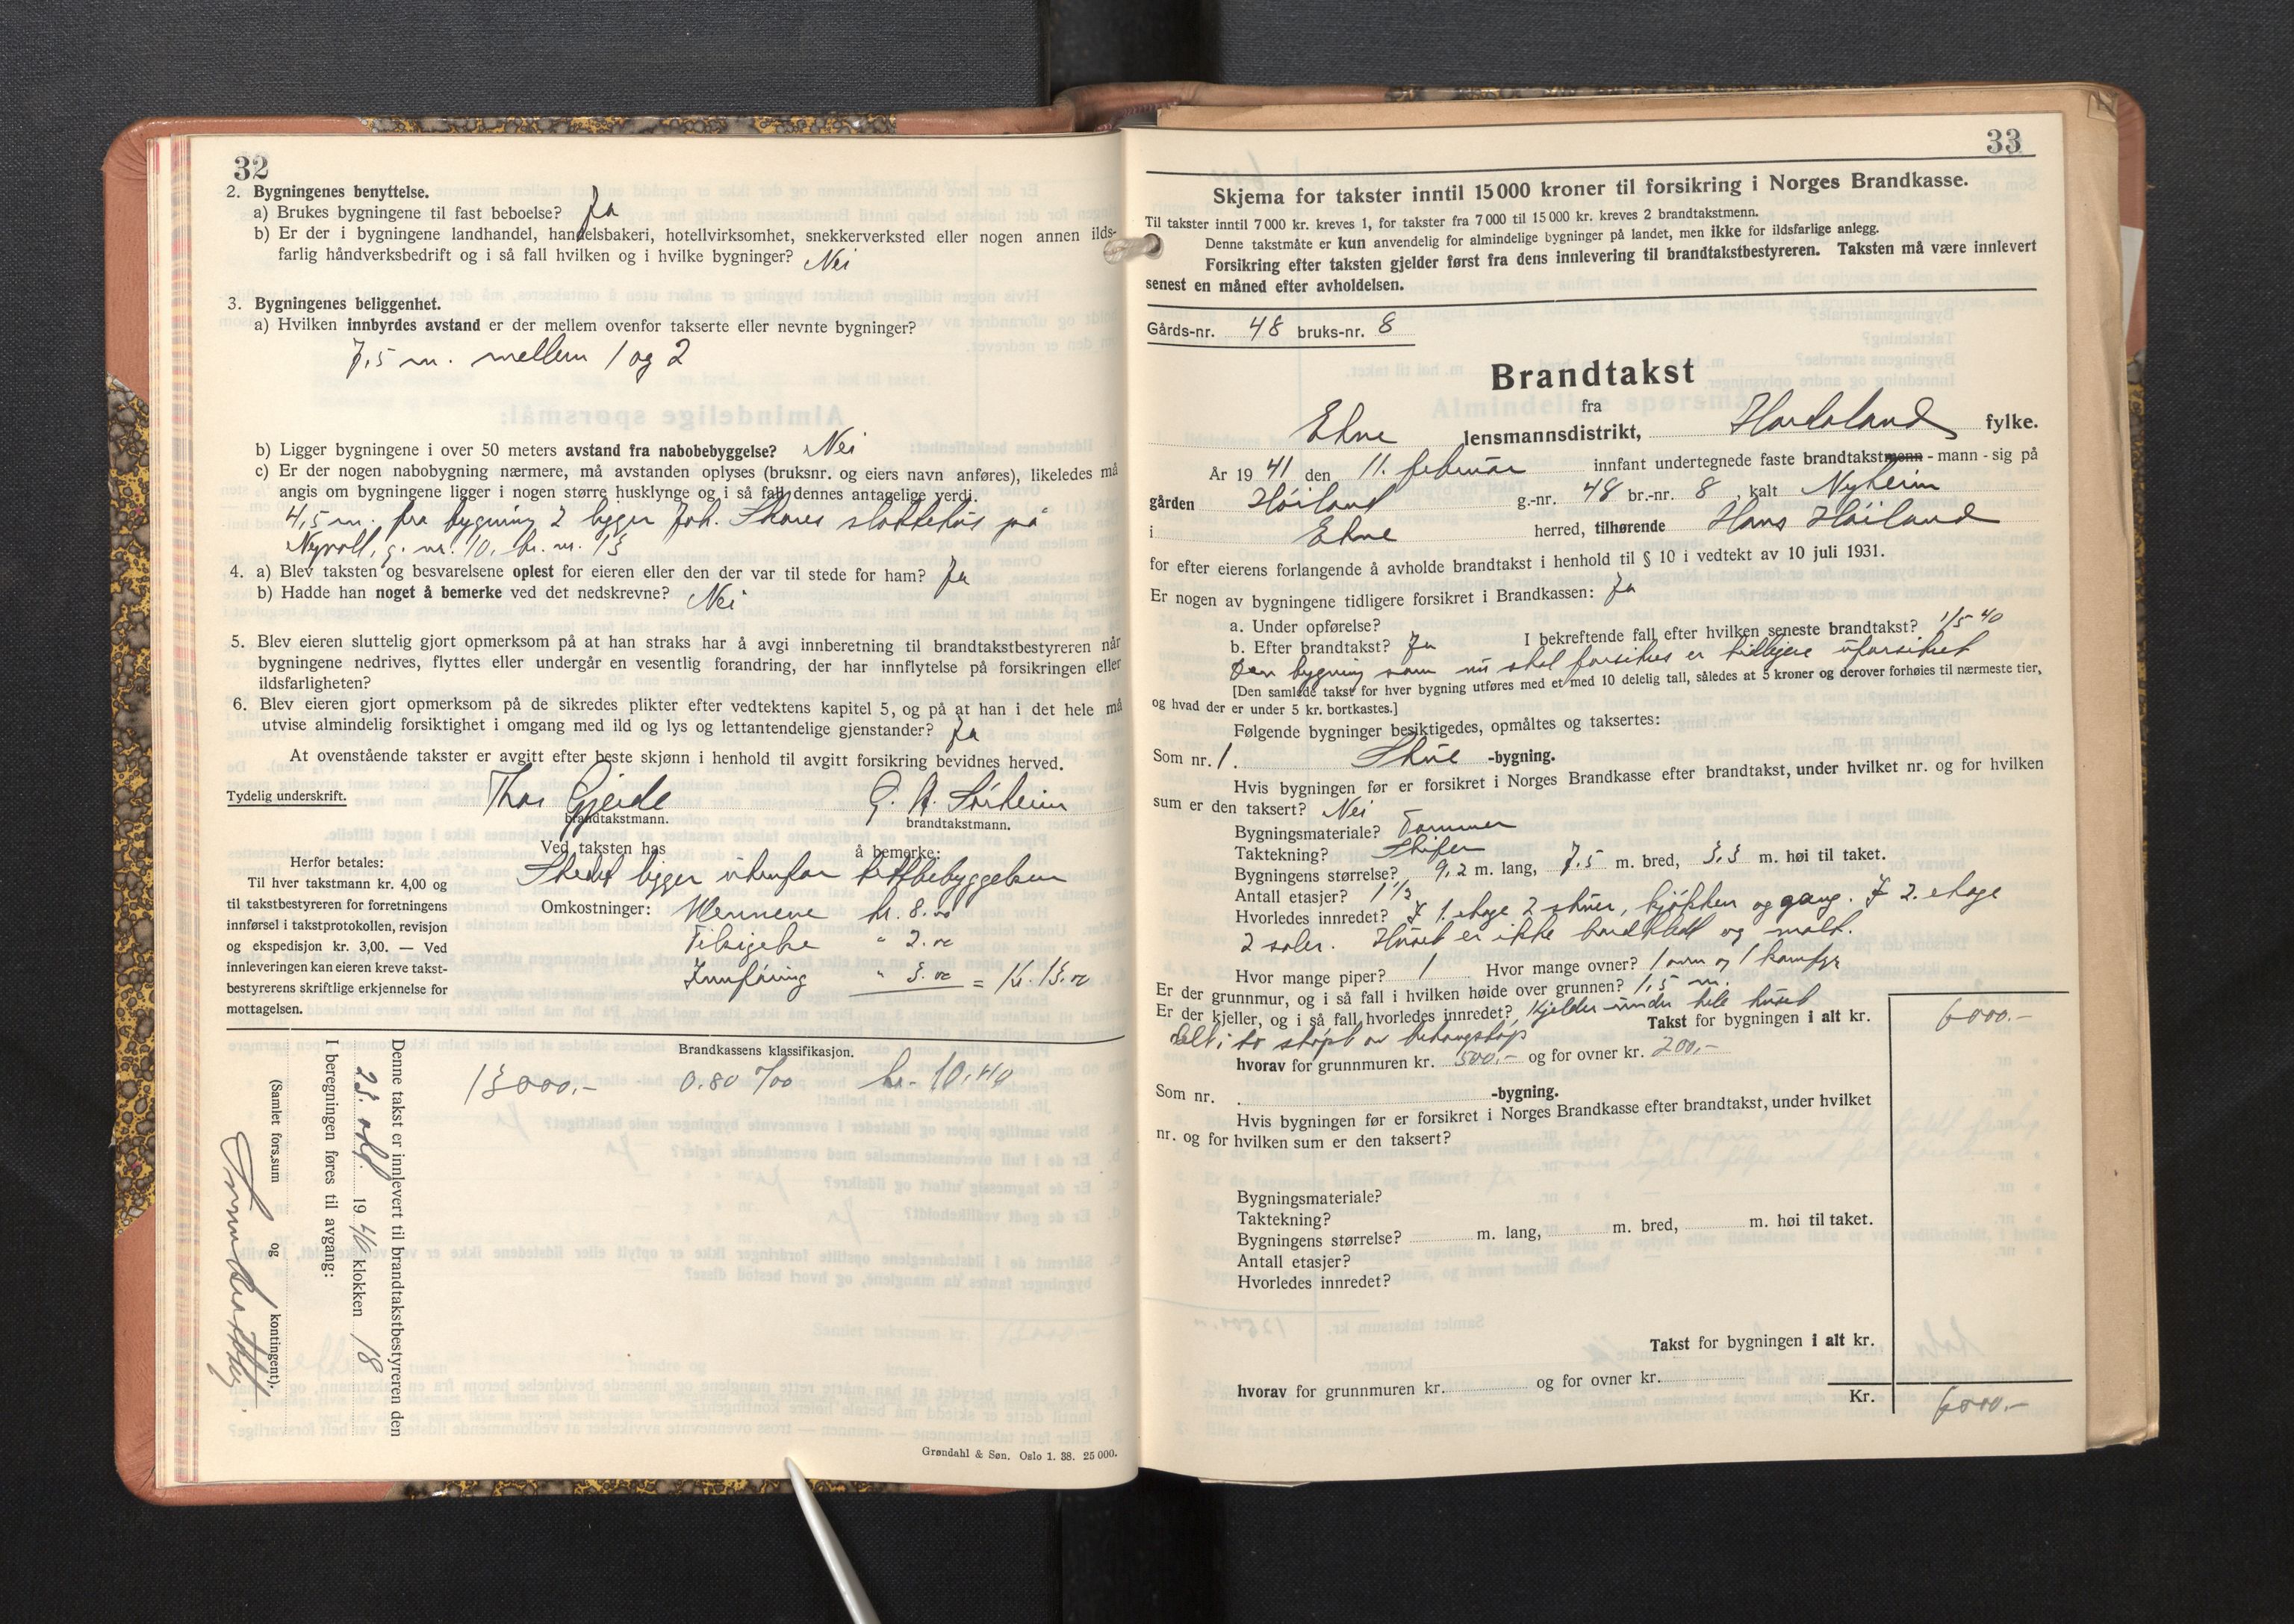 32
2. Bygningenes benyttelse.
a) Brukes bygningene til fast beboelse? Ja
b) Er der i bygningene landhandel, handelsbakeri, hotellvirksomhet, snekkerverksted eller nogen annen ilds-
farlig håndverksbedrift og i så fall hvilken og i hvilke bygninger? Nei
3. Bygningenes beliggenhet.
a) Hvilken innbyrdes avstand er der mellem ovenfor takserte eller nevnte bygninger?
7,5 m. mellem 1 og 2
b) Ligger bygningene i over 50 meters avstand fra nabobebyggelse? Nei
c) Er der nogen nabobygning nærmere, må avstanden oplyses (bruksnr. og eiers navn anføres), likeledes må
angis om bygningene ligger i nogen større husklynge og i så fall dennes antagelige verdi.
4,5 m. fra bygning 2 ligger Joh. Skares slaktehus på
Nyvoll, g. nr. 10, br. nr. 13
4. a) Blev taksten og besvarelsene oplest for eieren eller den der var til stede for ham? Ja
b) Hadde han noget å bemerke ved det nedskrevne? Nei
5. Blev eieren sluttelig gjort opmerksom på at han straks har å avgi innberetning til brandtakstbestyreren når
bygningene nedrives, flyttes eller undergår en vesentlig forandring, der har innflytelse på forsikringen eller
ildsfarligheten?
6. Blev eieren gjort opmerksom på de sikredes plikter efter vedtektens kapitel 5, og på at han i det hele må
utvise almindelig forsiktighet i omgang med ild og lys og lettantendelige gjenstander? Ja
At ovenstående takster er avgitt efter beste skjønn i henhold til avgitt forsikring bevidnes herved.
Tydelig underskrift. Thor Gjerde G. A. Sørheim
brandtakstmann. brandtakstmann.
Ved taksten has å bemerke:
Stedet ligger utenfor tettbebyggelsen
Herfor betales:
Til hver takstmann kr. 4,00 og
til takstbestyreren for forretningens
innførsel i takstprotokollen, revisjon
og ekspedisjon kr. 3,00. — Ved
innleveringen kan eieren kreve takst-
bestyrerens skriftlige erkjennelse for
mottagelsen.
Omkostninger: Mennene kr. 8.00
Tilsigelse " 2.00
Innføring " 3.00 = Kr. 13.00
Brandkassens klassifikasjon.
13000.- 0.80 ‰ kr. 10,40
Denne takst er innlevert til brandtakstbestyreren den
23. okt. 1940 klokken 18
I beregningen føres til avgang:
(Samlet fors.sum og kontingent).
Grøndahl & Søn. Oslo 1. 38. 25 000.
33
Skjema for takster inntil 15 000 kroner til forsikring i Norges Brandkasse.
Til takster inntil 7 000 kr. kreves 1, for takster fra 7 000 til 15 000 kr. kreves 2 brandtakstmenn.
Denne takstmåte er kun anvendelig for almindelige bygninger på landet, men ikke for ildsfarlige anlegg.
Forsikring efter taksten gjelder først fra dens innlevering til brandtakstbestyreren. Taksten må være innlevert
senest en måned efter avholdelsen.
Gårds-nr. 48 bruks-nr. 8
Brandtakst
fra
Etne lensmannsdistrikt, Hordaland fylke.
År 1941 den 11. februar innfant undertegnede faste brandtakstmenn - mann - sig på
gården Høiland g.-nr. 48 br.-nr. 8, kalt Nyheim
i Etne herred, tilhørende Hans Høiland
for efter eierens forlangende å avholde brandtakst i henhold til § 10 i vedtekt av 10 juli 1931.
Er nogen av bygningene tidligere forsikret i Brandkassen: Ja
a. Under opførelse?
b. Efter brandtakst? Ja I bekreftende fall efter hvilken seneste brandtakst? 1/5-40
Den bygning som nu skal forsikres er tidligere uforsikret
[Den samlede takst for hver bygning utføres med et med 10 delelig tall, således at 5 kroner og derover forhøies til nærmeste tier,
og hvad der er under 5 kr. bortkastes.]
Følgende bygninger besiktigedes, opmåltes og taksertes:
Som nr. 1. Stue -bygning.
Hvis bygningen før er forsikret i Norges Brandkasse efter brandtakst, under hvilket nr. og for hvilken
sum er den taksert? Nei
Bygningsmateriale? Tømmer
Taktekning? Skifer
Bygningens størrelse? 9,2 m. lang, 7.5 m. bred, 3,3 m. høi til taket.
Antall etasjer? 1 1/2
Hvorledes innredet? I 1. etage 2 stuer, kjøkken og gang. I 2. etage
2 saler. Huset er ikke bordkledt og malt.
Hvor mange piper? 1 Hvor mange ovner? 1 ovn og 1 komfyr
Er der grunnmur, og i så fall i hvilken høide over grunnen? 1,5 m.
Er der kjeller, og i så fall hvorledes innredet? Kjelder under hele huset
delt i to støpt av betongstøp
Takst for bygningen i alt kr. 6000.-
hvorav for grunnmuren kr. 500.- og for ovner kr. 200,-
Som nr. -bygning.
Hvis bygningen før er forsikret i Norges Brandkasse efter brandtakst, under hvilket
nr. og for hvilken sum er den taksert?
Bygningsmateriale?
Taktekning?
Bygningens størrelse? m. lang, m. bred, m. høi til taket.
Antall etasjer?
Hvorledes innredet?
Takst for bygningen i alt kr.
hvorav for grunnmuren kr. og for ovner kr.
Kr. 6000.-